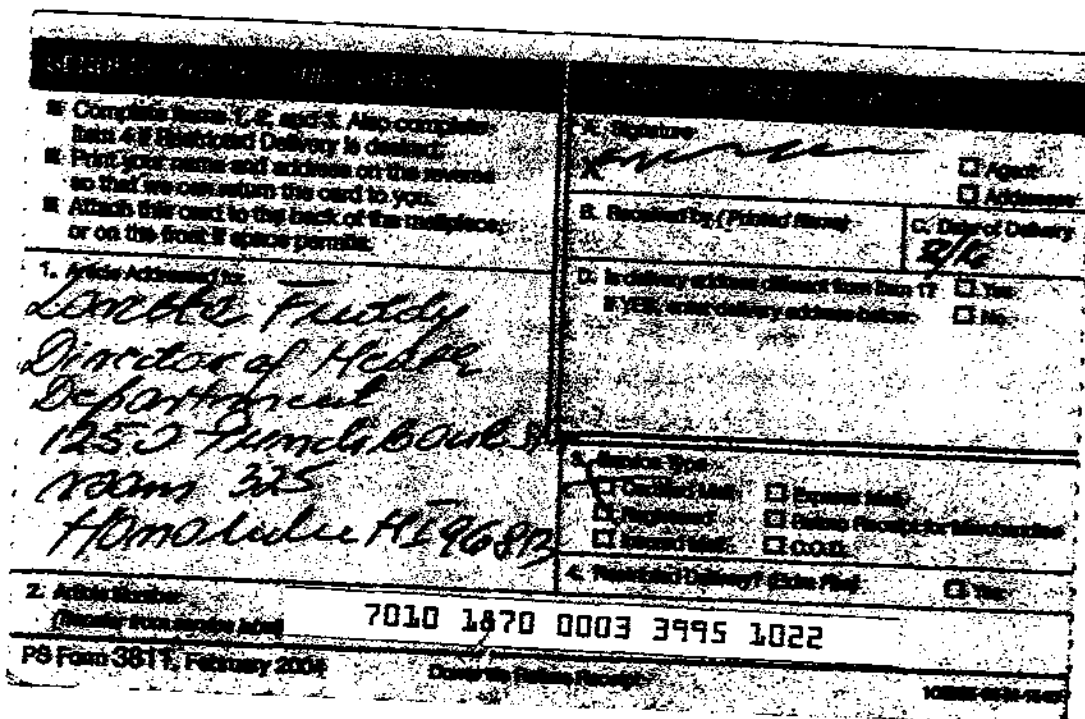 SENDER: COMPLETE THIS SECTION
■ Complete items 1, 2, and 3. Also complete
item 4 if Restricted Delivery is desired.
■ Print your name and address on the reverse
so that we can return the card to you.
■ Attach this card to the back of the mailpiece,
or on the front if space permits.
1. Article Addressed to:
Loretta Fuddy
Director of
Department
1250 Punchbowl
room 325
Honolulu HI 96813
2. Article Number
(Transfer from service label)
7010 1870 0003 3995 1022
PS Form 3811, February 2004
Domestic Return Receipt
A. Signature
X
☐ Agent
☐ Addressee
B. Received by (Printed Name)
C. Date of Delivery
D. Is delivery address different from item 1? ☐ Yes
If YES, enter delivery address below: ☐ No
3. Service Type
☐ Certified Mail ☐ Express Mail
☐ Registered ☐ Return Receipt for Merchandise
☐ Insured Mail ☐ C.O.D.
4. Restricted Delivery? (Extra Fee) ☐ Yes